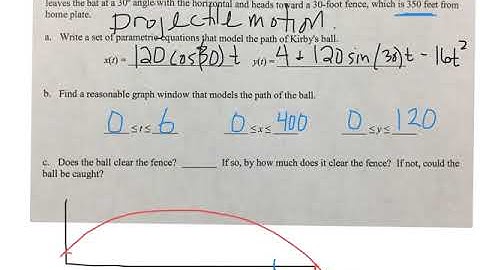 leaves the bat at a 30° angle with the horizontal and heads toward a 30-foot fence, which is 350 feet from
home plate.
projectile motion.
a. Write a set of parametric equations that model the path of Kirby's ball.
x(t) = 120 cos(30)t y(t) = 4 + 120 sin(30)t - 16t²
b. Find a reasonable graph window that models the path of the ball.
0 ≤ t ≤ 6 0 ≤ x ≤ 400 0 ≤ y ≤ 120
c. Does the ball clear the fence? If so, by how much does it clear the fence? If not, could the
ball be caught?